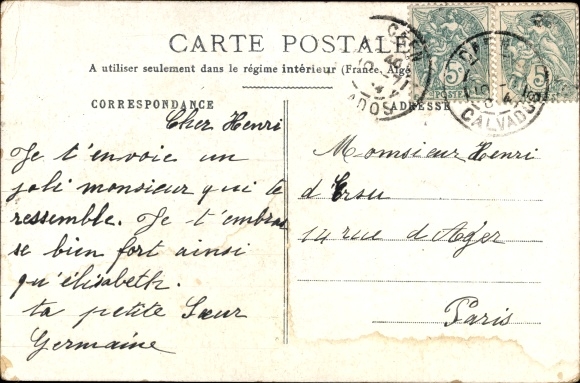 CARTE POSTALE
A utiliser seulement dans le régime intérieur (France, Algé
CORRESPONDANCE
ADRESSE
5
POSTES
5
CALVADOS
ADOS
Cher Henri
Je t'envoie un
joli monsieur qui te
ressemble. Je t'embras
se bien fort ainsi
qu'élisabeth.
ta petite Sœur
Germaine
Monsieur Henri
d'Ersu
14 rue d'Ager
Paris